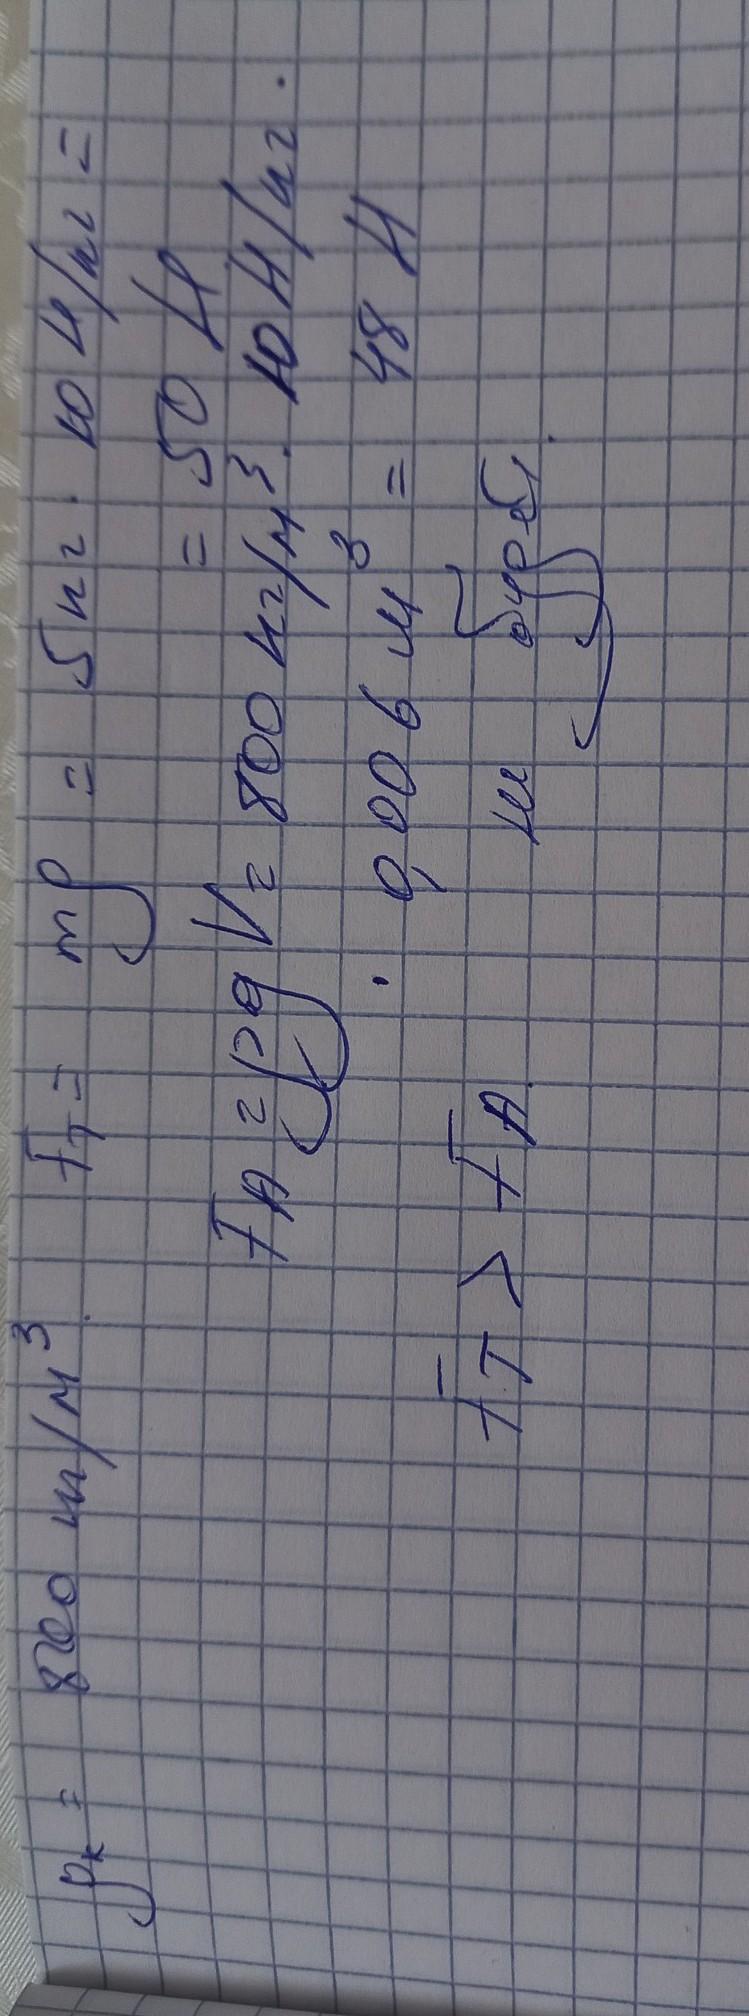 ρк = 800 кг/м³. Fт = mg = 5 кг · 10 Н/кг =
= 50 Н
FА = ρgV = 800 кг/м³ · 10 Н/кг ·
· 0,006 м³ = 48 Н
Fт > FА